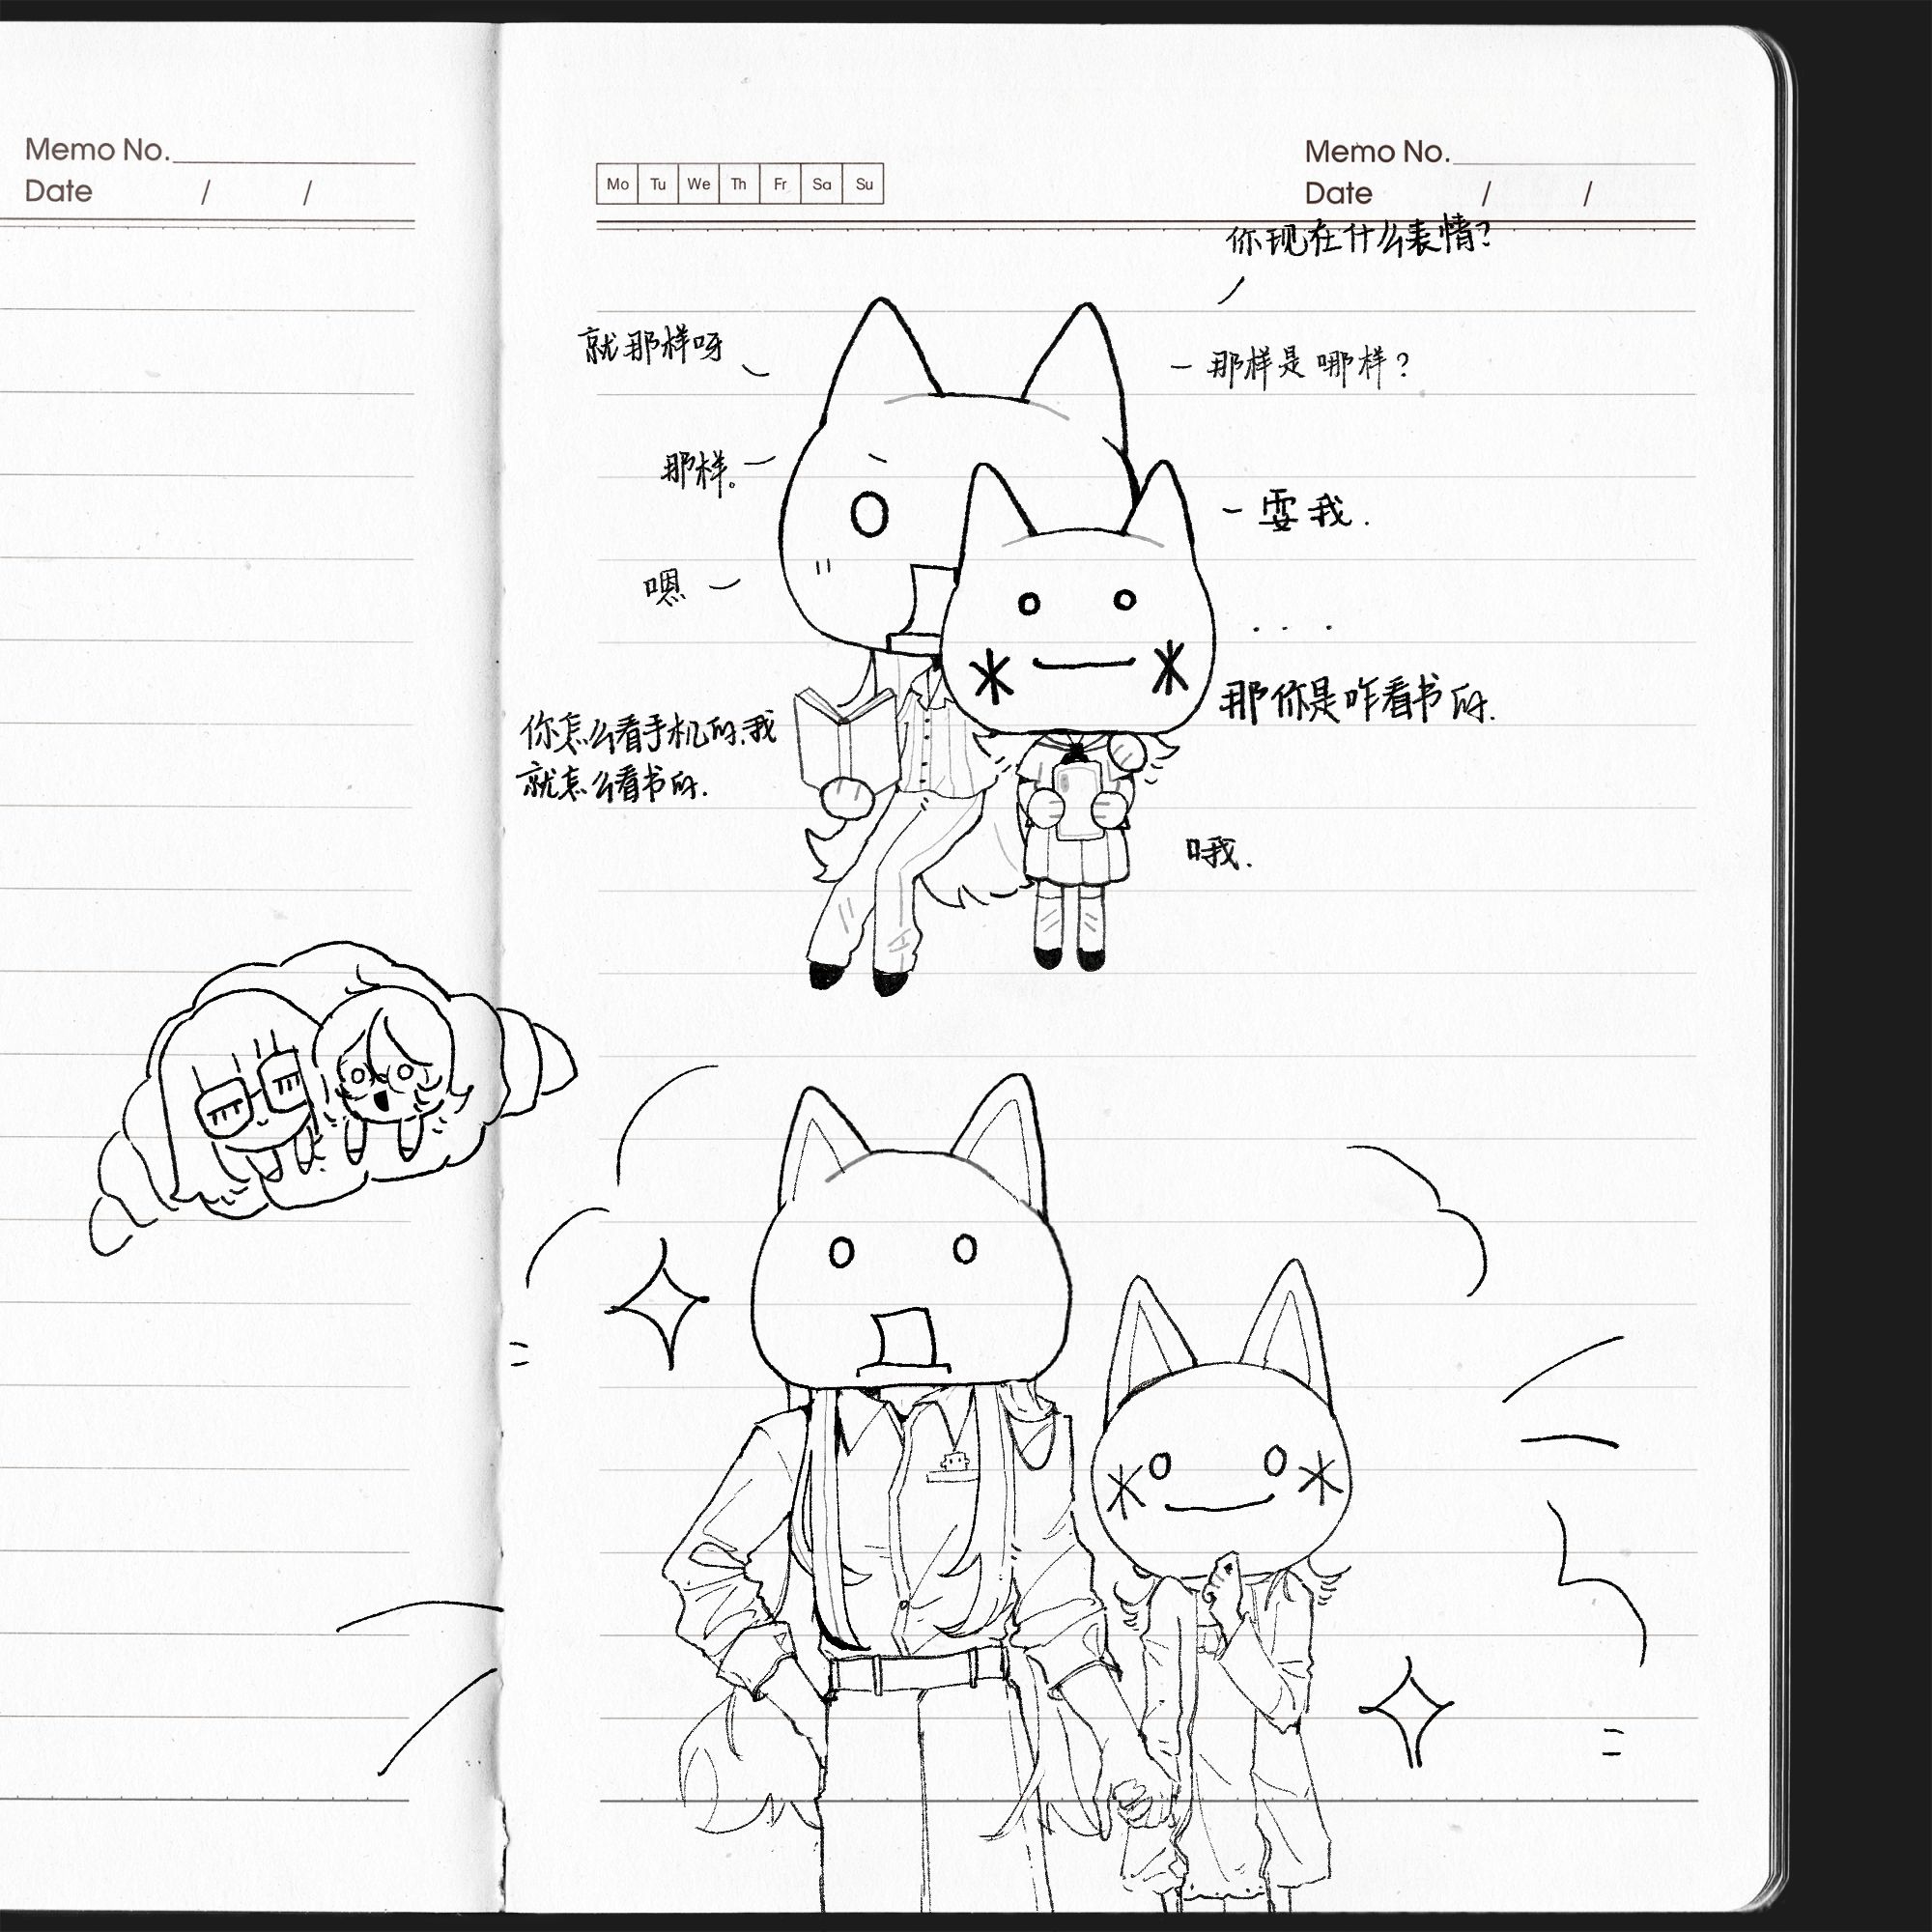 Memo No.
Date / /
Mo Tu We Th Fr Sa Su
Memo No.
Date / /
你现在什么表情?
就那样呀
那样是哪样?
那样。
耍我.
嗯
...
那你是咋看书的.
你怎么看手机的,我
就怎么看书的.
哦.